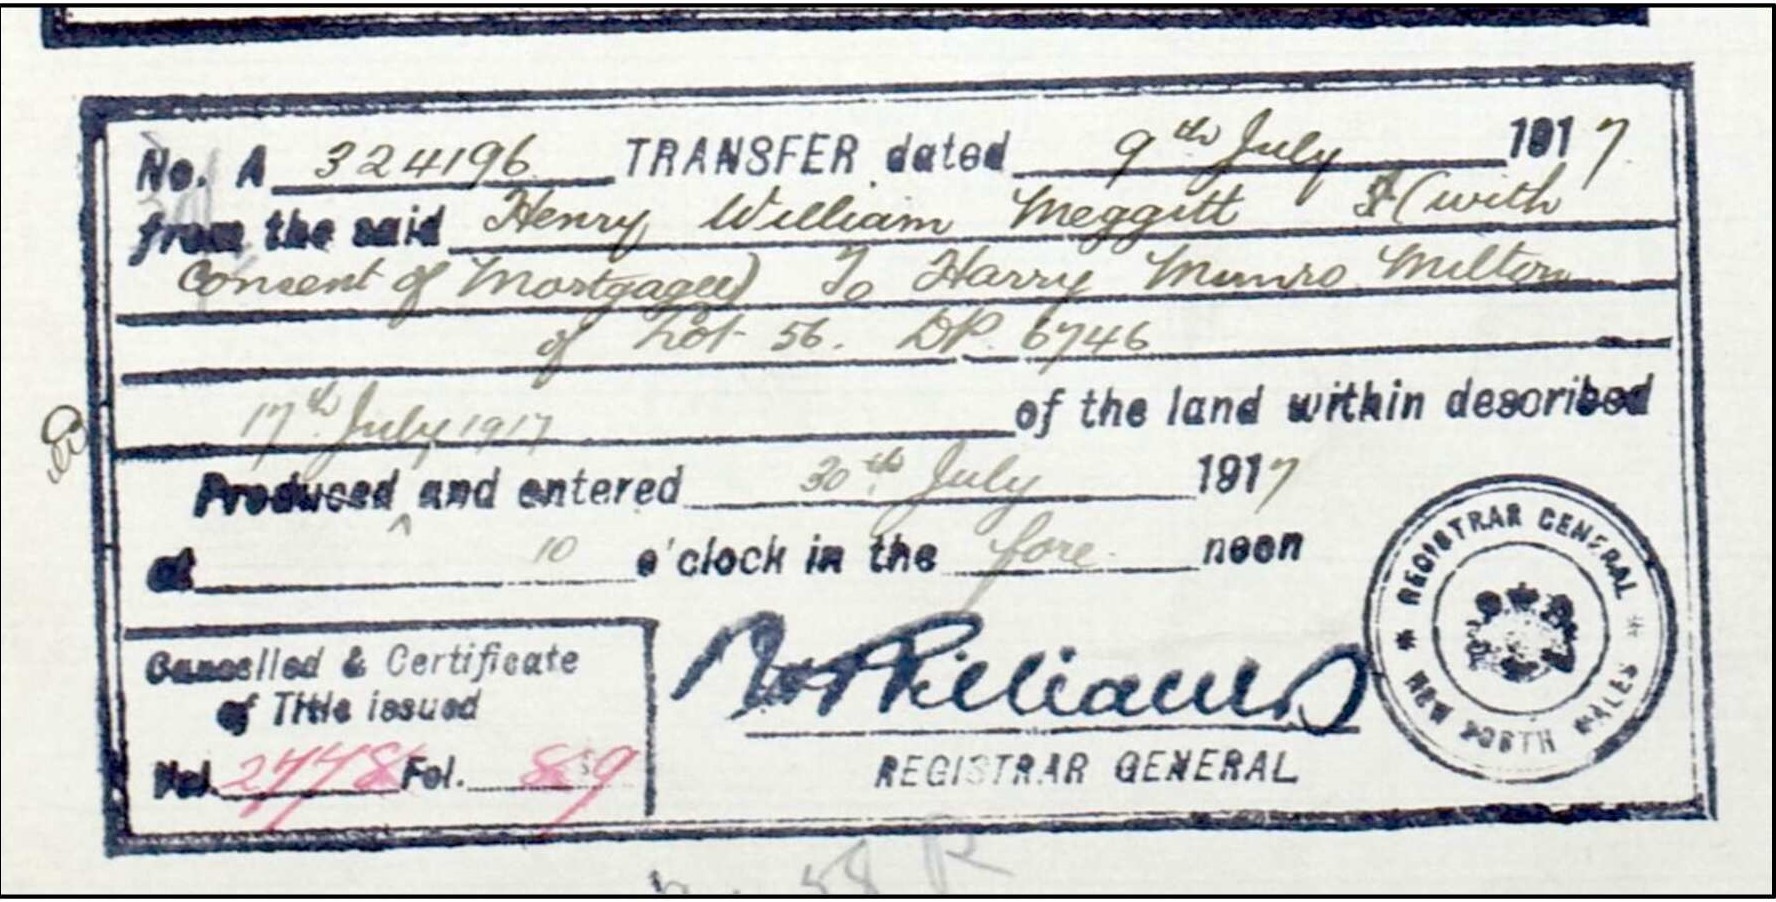 No. A 324196 TRANSFER dated 9th July 1917
from the said Henry William Meggitt (with
consent of Mortgagee) To Harry Munro Milton
of Lot 56. DP. 6746
17th July 1917 of the land within described
Produced ^ and entered 30th July 1917
at 10 o'clock in the fore noon
Cancelled & Certificate
of Title issued
Vol. 2778 Fol. 89
Williams
REGISTRAR GENERAL
REGISTRAR GENERAL
* NEW SOUTH WALES *